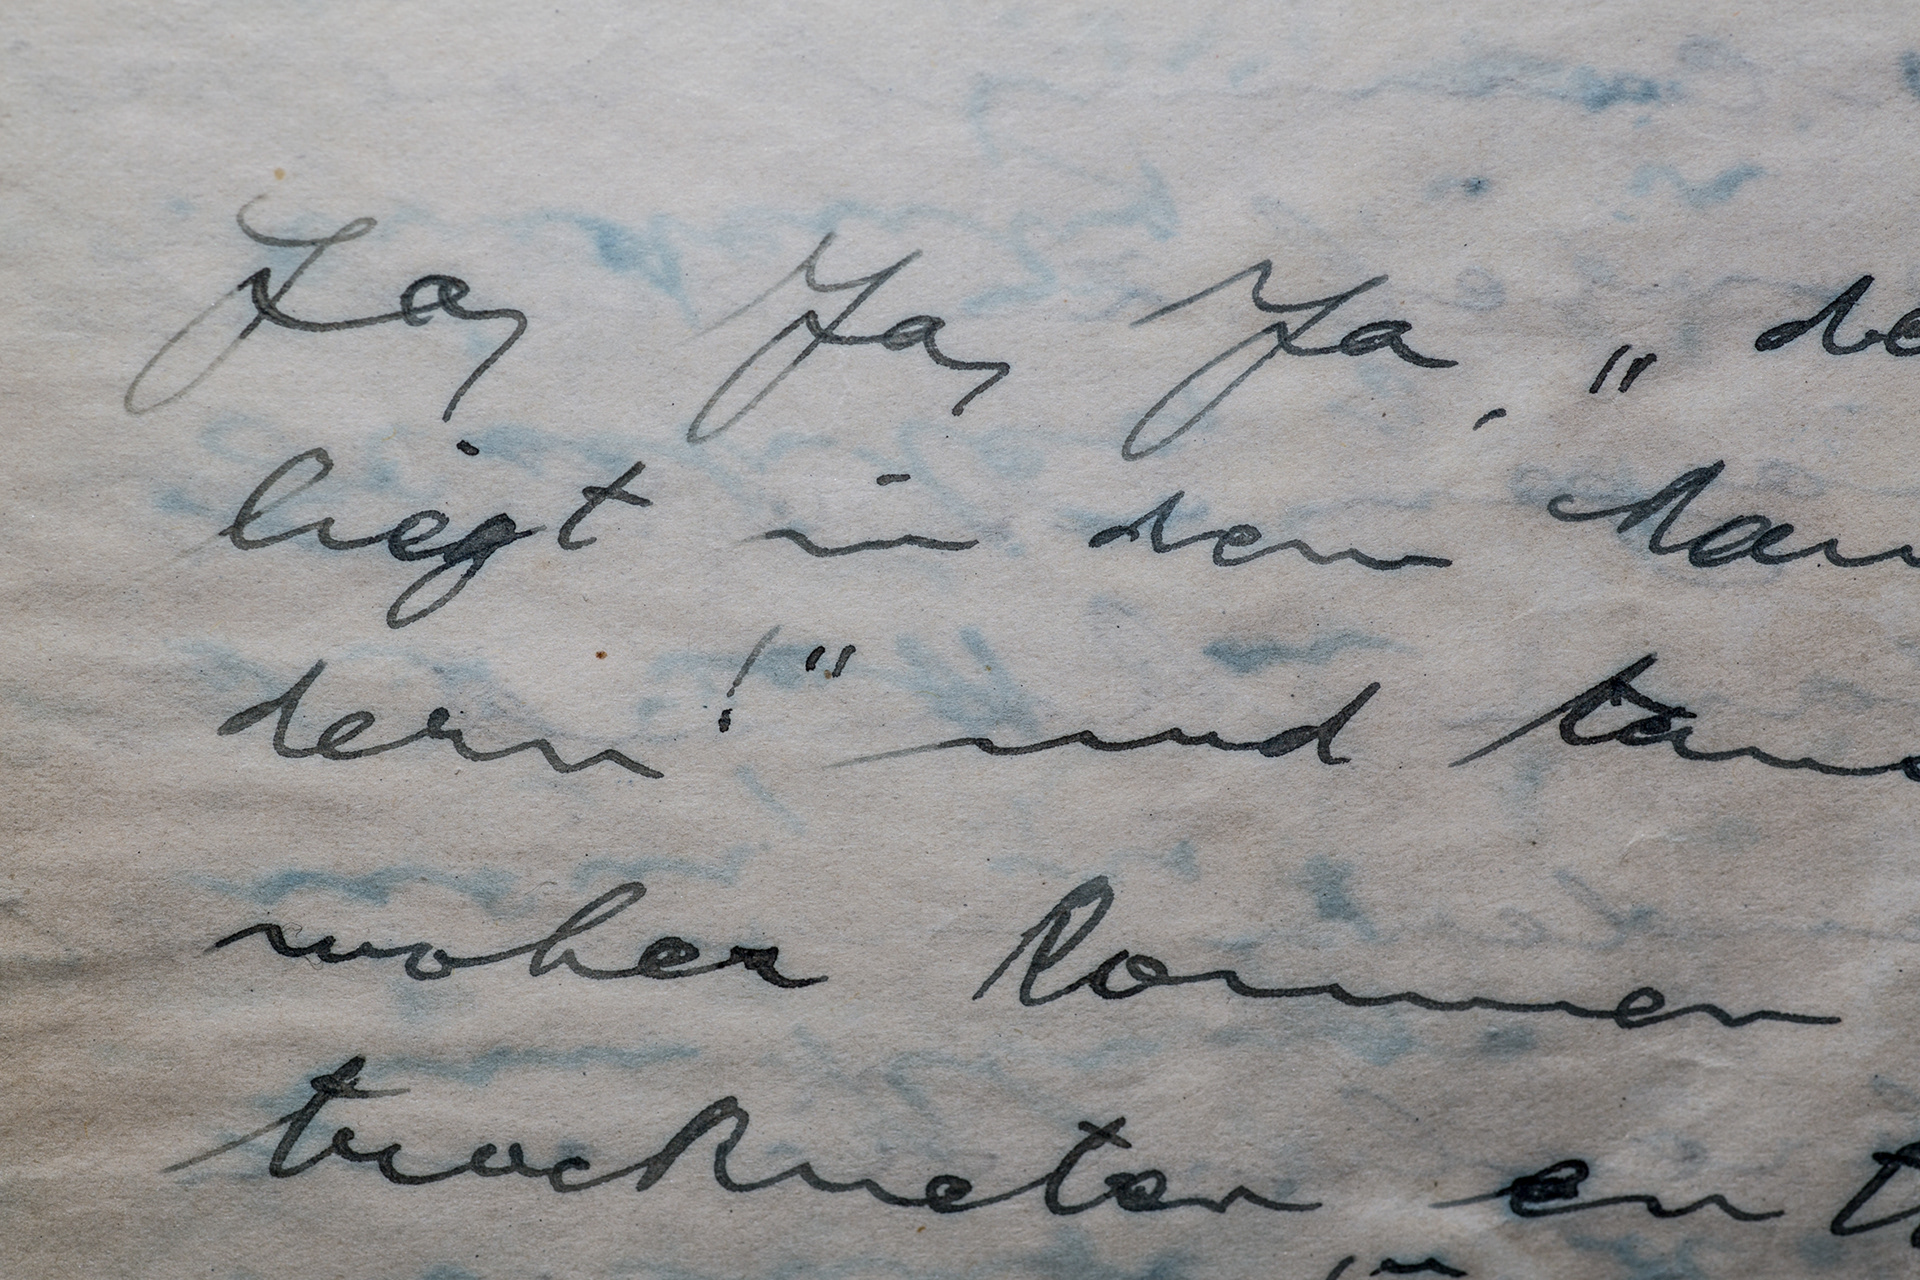 Ja, Ja, Ja, „de
liegt in dem
dern!" und
woher kommen
trockneten en